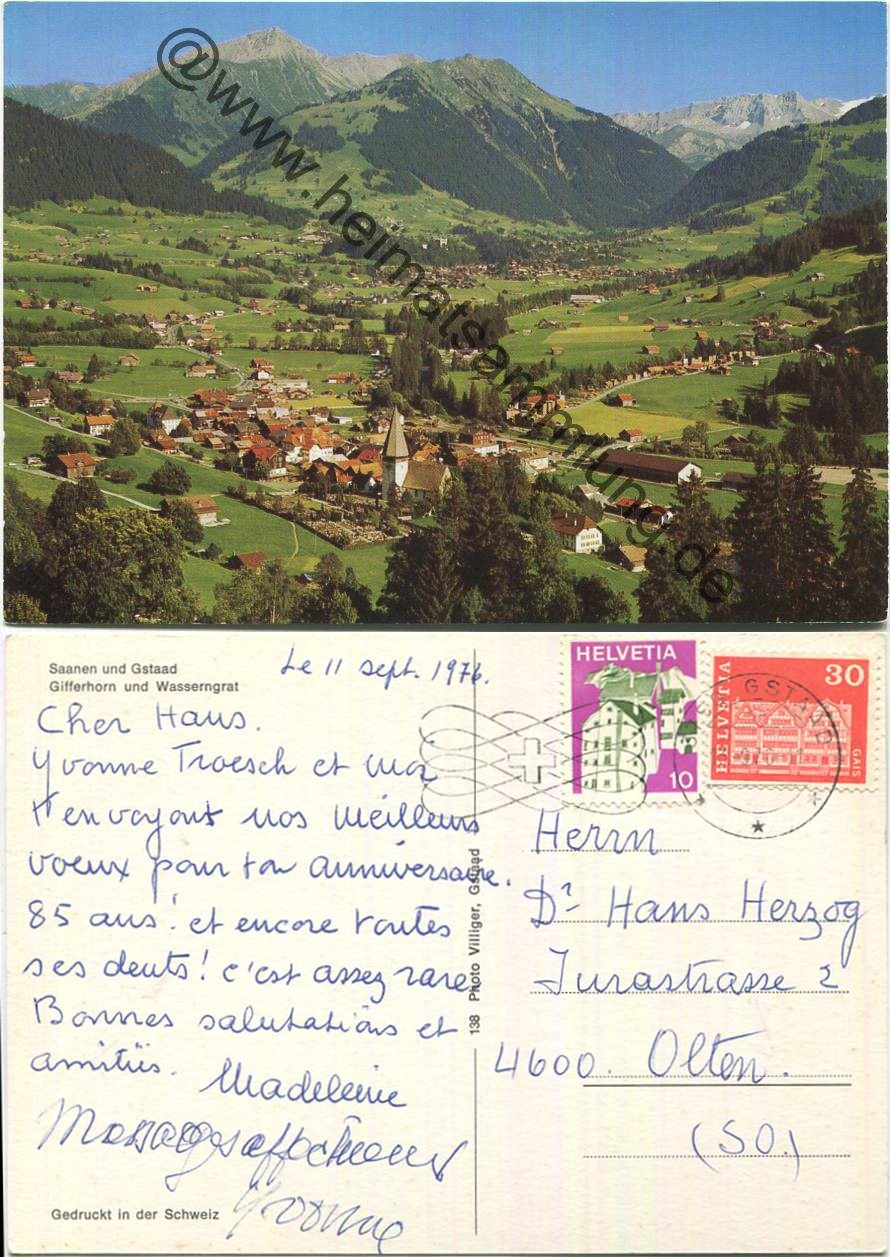 @www.heimatsammlung.de
Saanen und Gstaad
Gifferhorn und Wasserngrat
Le 11 sept. 1976.
Cher Hans.
Yvonne Troesch et moi
t'envoyons nos meilleurs
voeux pour ton anniversaire.
85 ans! et encore toutes
ses dents! c'est assez rare
Bonnes salutations et
amitiés. Madeleine
Messages affectueux
Yvonne
Gedruckt in der Schweiz
138 Photo Villiger, Gstaad
HELVETIA
10
HELVETIA
30
GAIS
GSTAAD
Herrn
Dr Hans Herzog
Jurastrasse 2
4600. Olten.
(SO.)